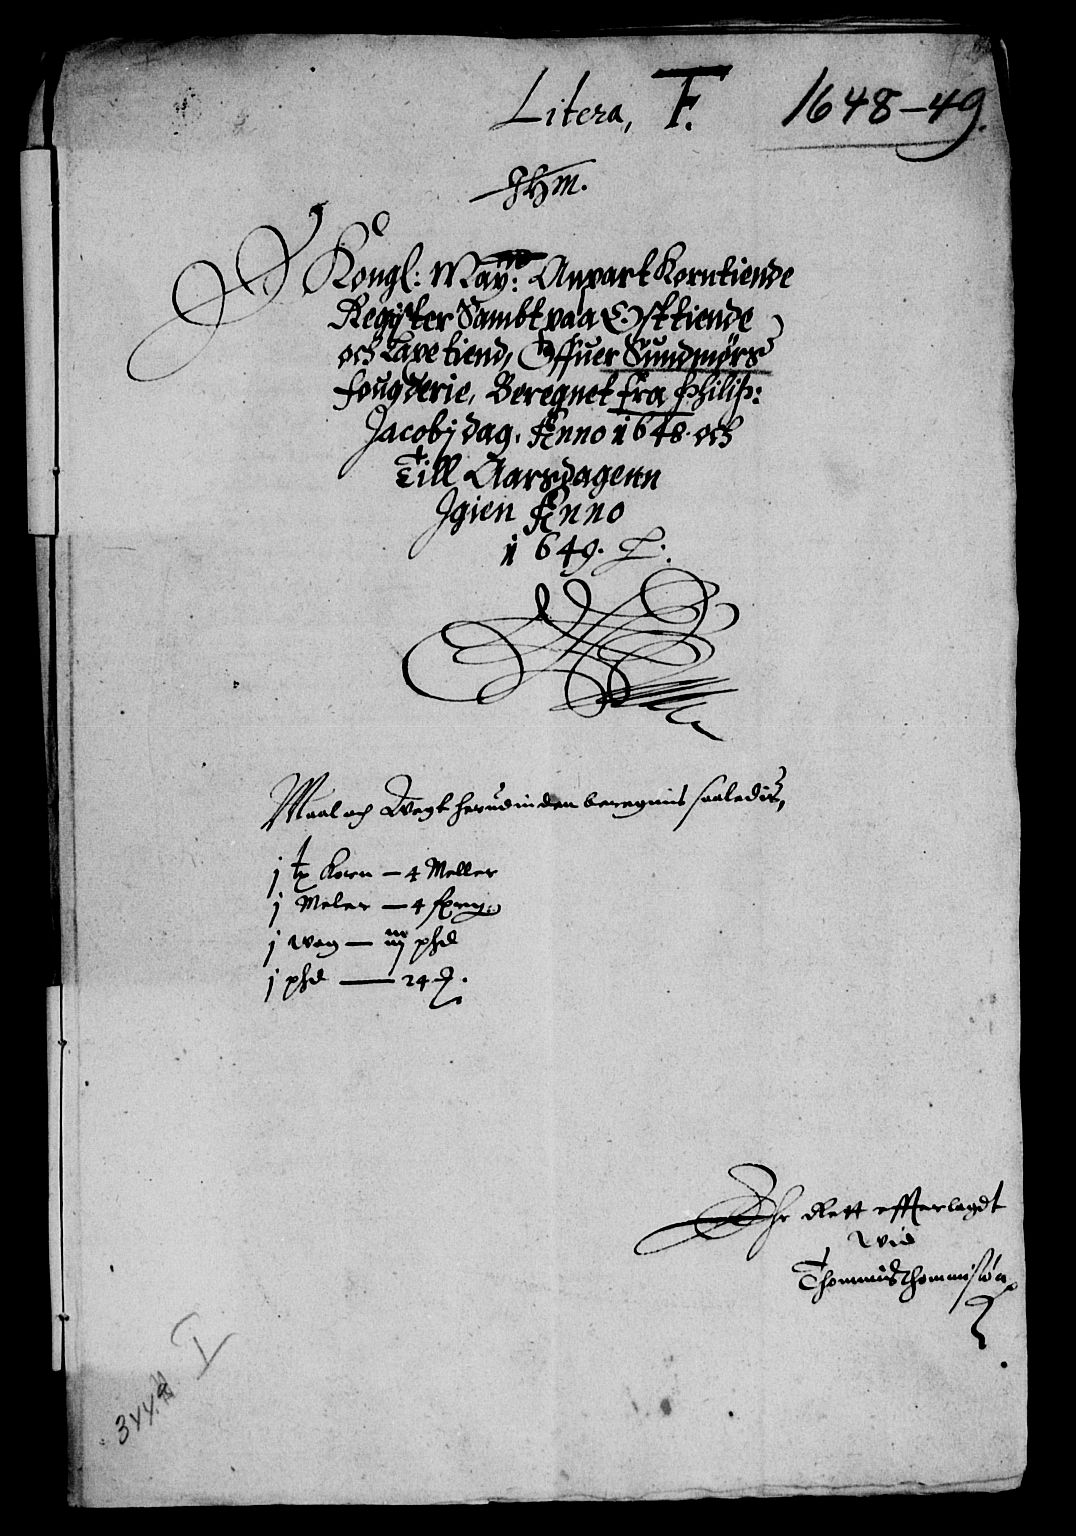 Litera, F. 1648-49.
Jhm.
Kongl: May: Anpart Korntiende
Register Sambt paa Osttiende
och Laxetiend, Offuer Sundmørs
fougderie, Beregnet fra Philip:
Jacobj dag, Anno 1648. och
Till Aarsdagenn
Igien Anno
1649.
Maal och Wegt herudinden beregnis saaledis,
j tø Korn – 4 Meller
j Meler – 4
j Wog – iij phd
j phd – 24
Ehr Rett effterlagdt
Wid
Thommis Thommisøn
I
344.